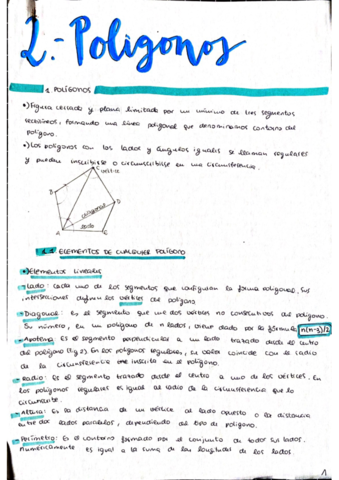 2.- Polígonos
1. POLÍGONOS
•) Figura cerrada y plana limitada por un mínimo de tres segmentos
rectilíneos, formando una línea poligonal que denominamos contorno del
polígono.
•) Los polígonos con los lados y ángulos iguales se llaman regulares
y pueden inscribirse o circunscribirse en una circunferencia.
vértice
D
B
diagonal
lado
A
E
1.1 ELEMENTOS DE CUALQUIER POLÍGONO
•) Elementos lineales
- Lado: cada uno de los segmentos que configuran la forma poligonal, sus
intersecciones definen los vértices del polígono
- Diagonal: es el segmento que une dos vértices no consecutivos del polígono.
Su número, en un polígono de n lados, viene dado por la fórmula n(n-3)/2
- Apotema: es el segmento perpendicular a un lado trazado desde el centro
del polígono (fig 2). En los polígonos regulares, su valor coincide con el radio
de la circunferencia inscrita en el polígono.
- Radio: es el segmento trazado desde el centro a uno de los vértices. En
los polígonos regulares es igual al radio de la circunferencia que lo
circunscribe.
- Altura: Es la distancia de un vértice al lado opuesto o la distancia
entre dos lados paralelos, dependiendo del tipo de polígono.
- Perímetro: Es el contorno formado por el conjunto de todos sus lados.
Numéricamente es igual a la suma de las longitudes de los lados
1